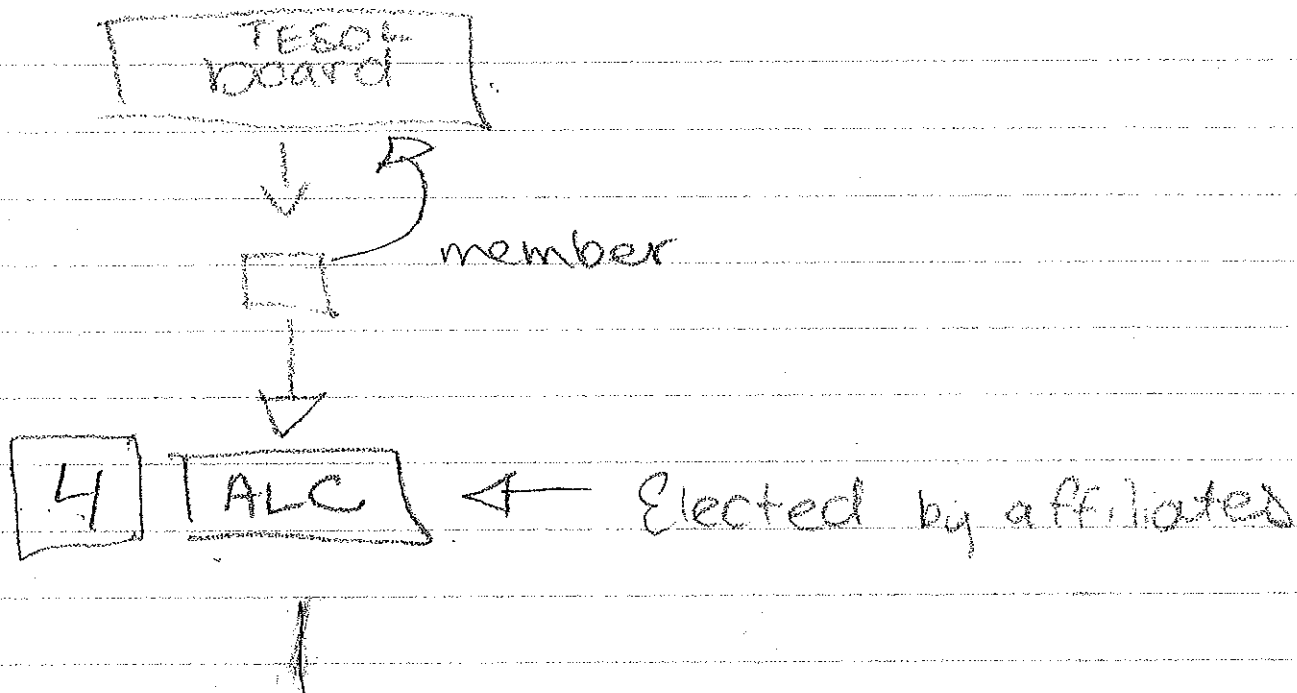 TESOL
board
member
4 ALC Elected by affiliates